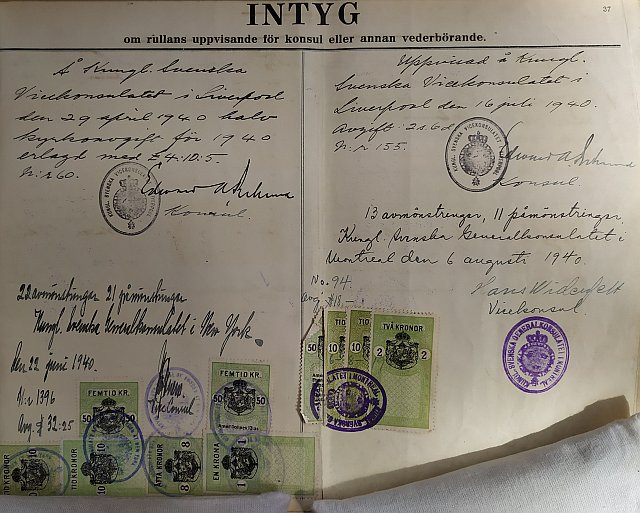 37
INTYG
om rullans uppvisande för konsul eller annan vederbörande.
Å Kungl. Svenska
Vicekonsulatet i Liverpool
den 29 april 1940 halv
kyrkoavgift för 1940
erlagd med £4.10.5.
N:r 60.
Konsul.
22 avmönstringar 21 påmönstringar
Kungl. Svenska Generalkonsulatet i New York.
Den 22 juni 1940.
N:r 1396
Avg. $ 32:25
Vicekonsul
FEMTIO KR.
50 50
FEMTIO KR.
50 50
TIO KRONOR
10
10
ÅTTA KRONOR
8
8
EN KRONA
1
Uppvisad å Kungl.
Svenska Vicekonsulatet i
Liverpool den 16 juli 1940.
Avgift: 2s.6d
N:r 155.
KUNGL. SVENSKA VICEKONSULATET LIVERPOOL
Konsul.
13 avmönstringar, 11 påmönstringar,
Kungl. Svenska Generalkonsulatet i
Montreal den 6 augusti 1940.
No. 94
Avg. $18.-
Vicekonsul
50
TIO
10
TIO
10
TVÅ KRONOR
2 2
KUNGL. SVENSKA GENERALKONSULATET I MONTREAL